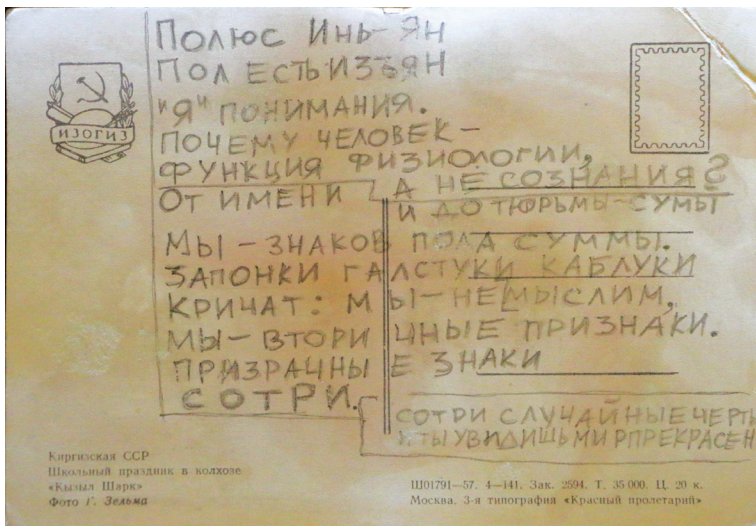 ПОЛЮС ИНЬ-ЯН
ПОЛ ЕСТЬ ИЗЪЯН
"Я" ПОНИМАНИЯ.
ПОЧЕМУ ЧЕЛОВЕК-
ФУНКЦИЯ ФИЗИОЛОГИИ,
А НЕ СОЗНАНИЯ?
ОТ ИМЕНИ И ДО ТЮРЬМЫ-СУМЫ
МЫ-ЗНАКОВ ПОЛА СУММЫ.
ЗАПОНКИ ГАЛСТУКИ КАБЛУКИ
КРИЧАТ: МЫ-НЕМЫСЛИМ,
МЫ-ВТОРИЧНЫЕ ПРИЗНАКИ.
ПРИЗРАЧНЫЕ ЗНАКИ
СОТРИ.
СОТРИ СЛУЧАЙНЫЕ ЧЕРТЫ
И ТЫ УВИДИШЬ МИР ПРЕКРАСЕН
ИЗОГИЗ
Киргизская ССР
Школьный праздник в колхозе
«Кызыл Шарк»
Фото Г. Зельма
Ш01791—57. 4—141. Зак. 2594. Т. 35 000. Ц. 20 к.
Москва. 3-я типография «Красный пролетарий»